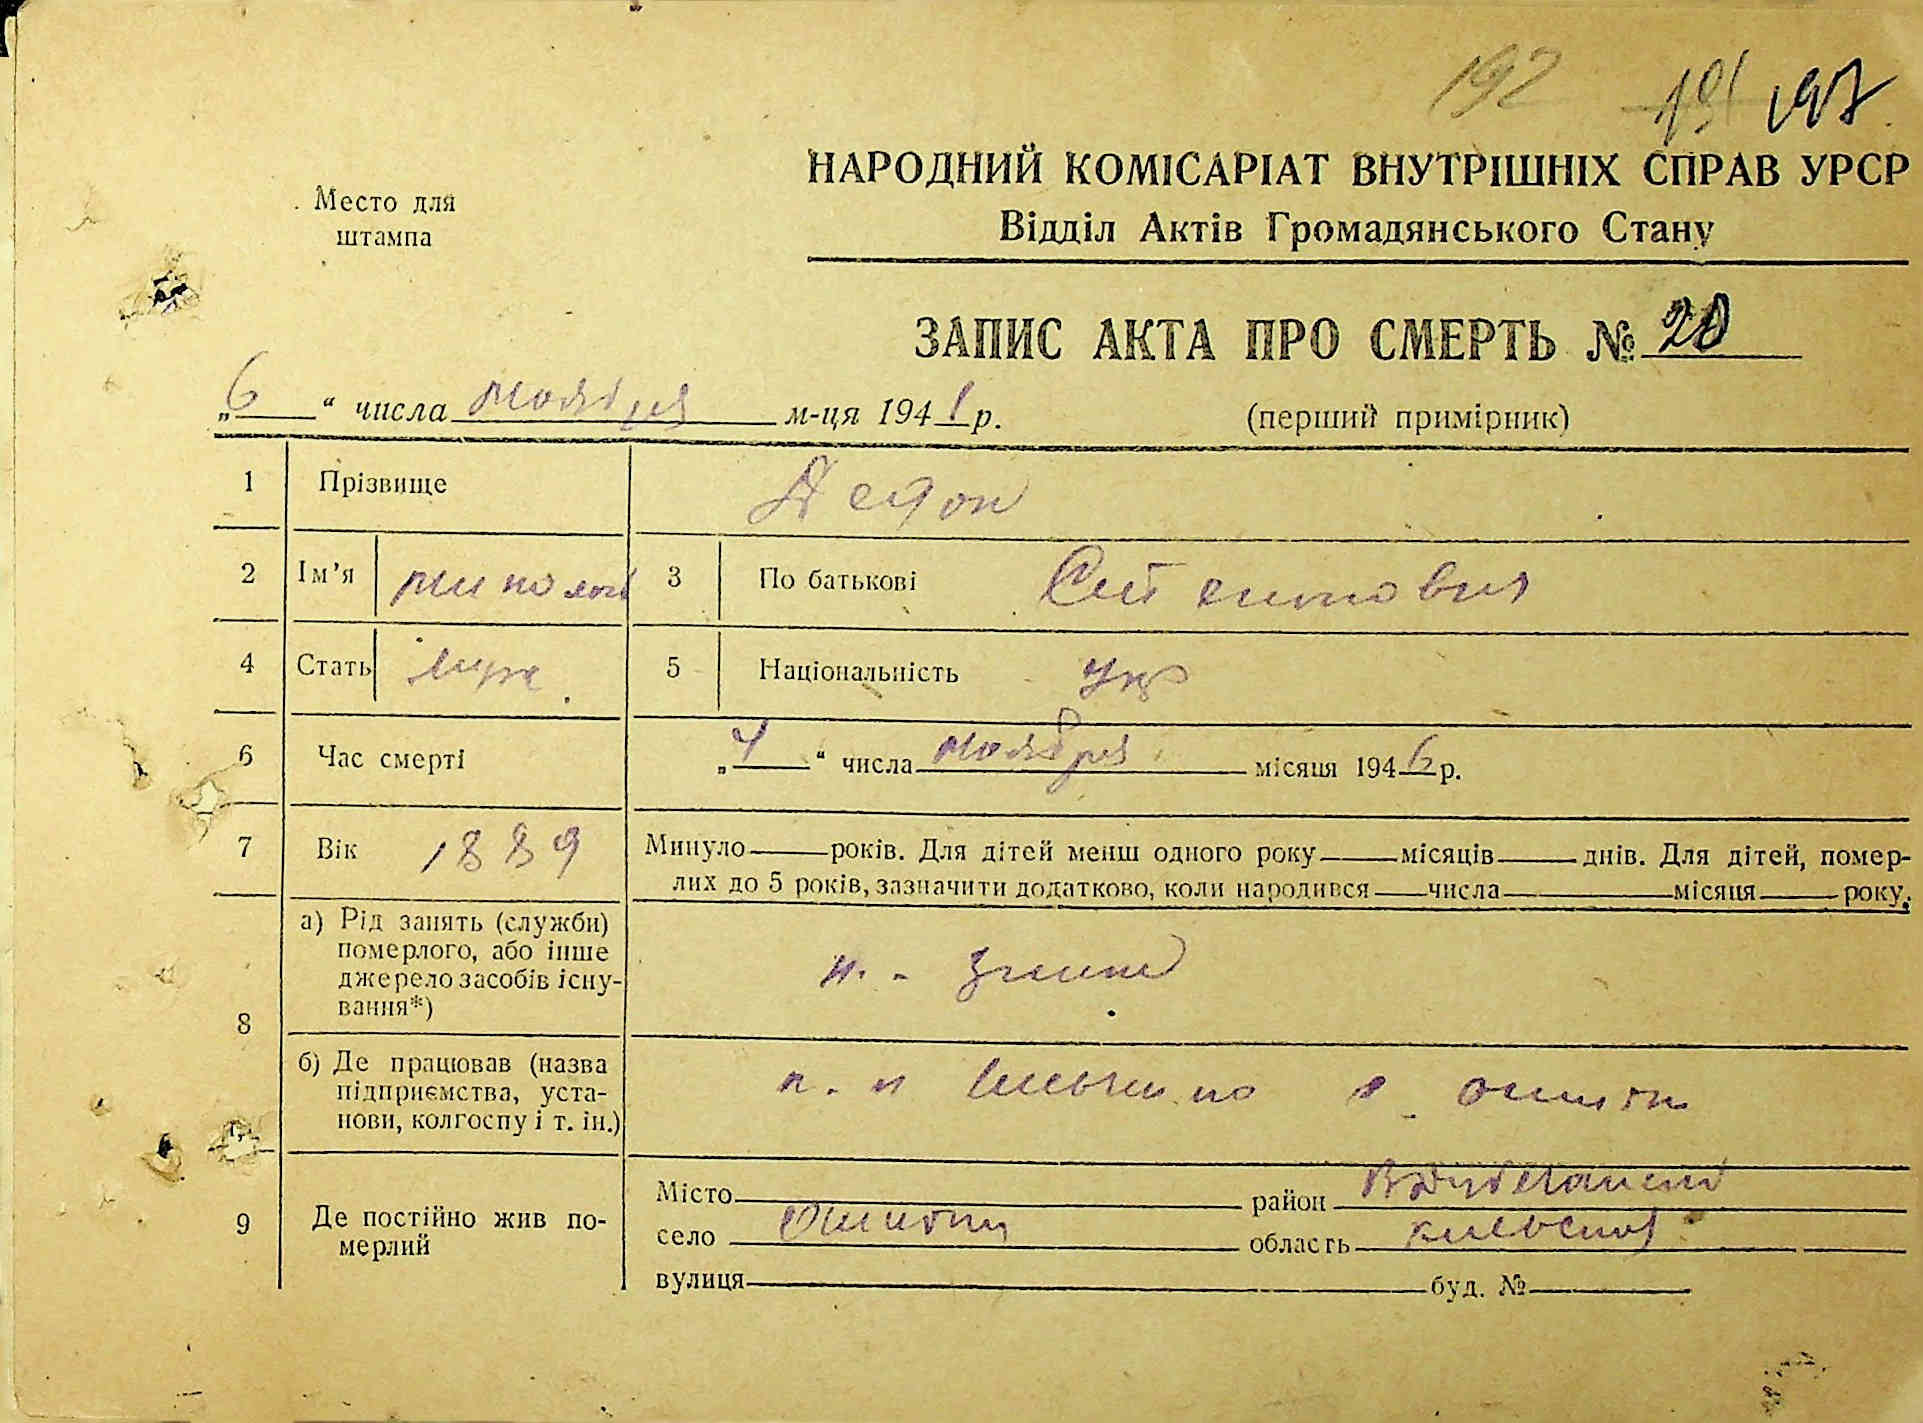 192 191 197
НАРОДНИЙ КОМІСАРІАТ ВНУТРІШНІХ СПРАВ УРСР
Место для штампа
Відділ Актів Громадянського Стану
ЗАПИС АКТА ПРО СМЕРТЬ № 20
„6“ числа ноября м-ця 1941 р.
(перший примірник)
1 Прізвище
2 Ім’я николай 3 По батькові Степанович
4 Стать муж 5 Національність Укр
6 Час смерті „4“ числа ноября місяця 1946 р.
7 Вік 1889 Минуло років. Для дітей менш одного року місяців днів. Для дітей, помер-
лих до 5 років, зазначити додатково, коли народився числа місяця року.
8 а) Рід занять (служби)
померлого, або інше
джерело засобів існу-
вання*)
б) Де працював (назва
підприємства, уста-
нови, колгоспу і т. ін.)
9 Де постійно жив по-
мерлий
Місто район
село область киевской
вулиця буд. №